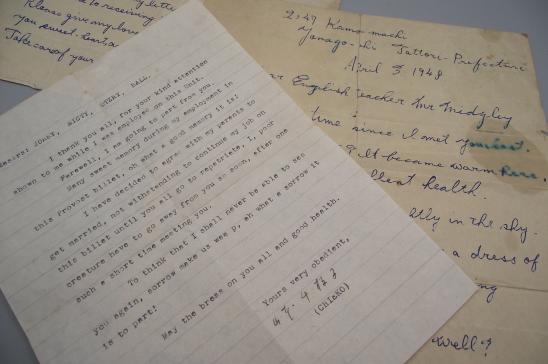 2:49 Kamo-machi
Yonago-shi Tottori-Prefecture
April 3 1948
English teacher Mr Midgley
time since I met you last.
It became warm here.
health.
in the sky.
a dress of
well?
to receiving
give my love
you sweet
Take care of your
JONNY, SIOTY, STERY, BALL,
I thank you all, for your kind attention
shown to me while I was employed on this Unit.
Farewell, I am going to part from you.
Many sweet memory during my employment in
this Provost billet, oh what a good memory it is!
I have decided to agree with my parents to
get married, not withstanding to continue my job on
this billet until you all go to repatriate, I, poor
creature have to go away from you so soon, after one
such a short time meeting you.
To think that I shall never be able to see
you again, sorrow make us weep, ah what a sorrow it
is to part!
May the bress on you all and good health.
Yours very obedient,
(CHIEKO)